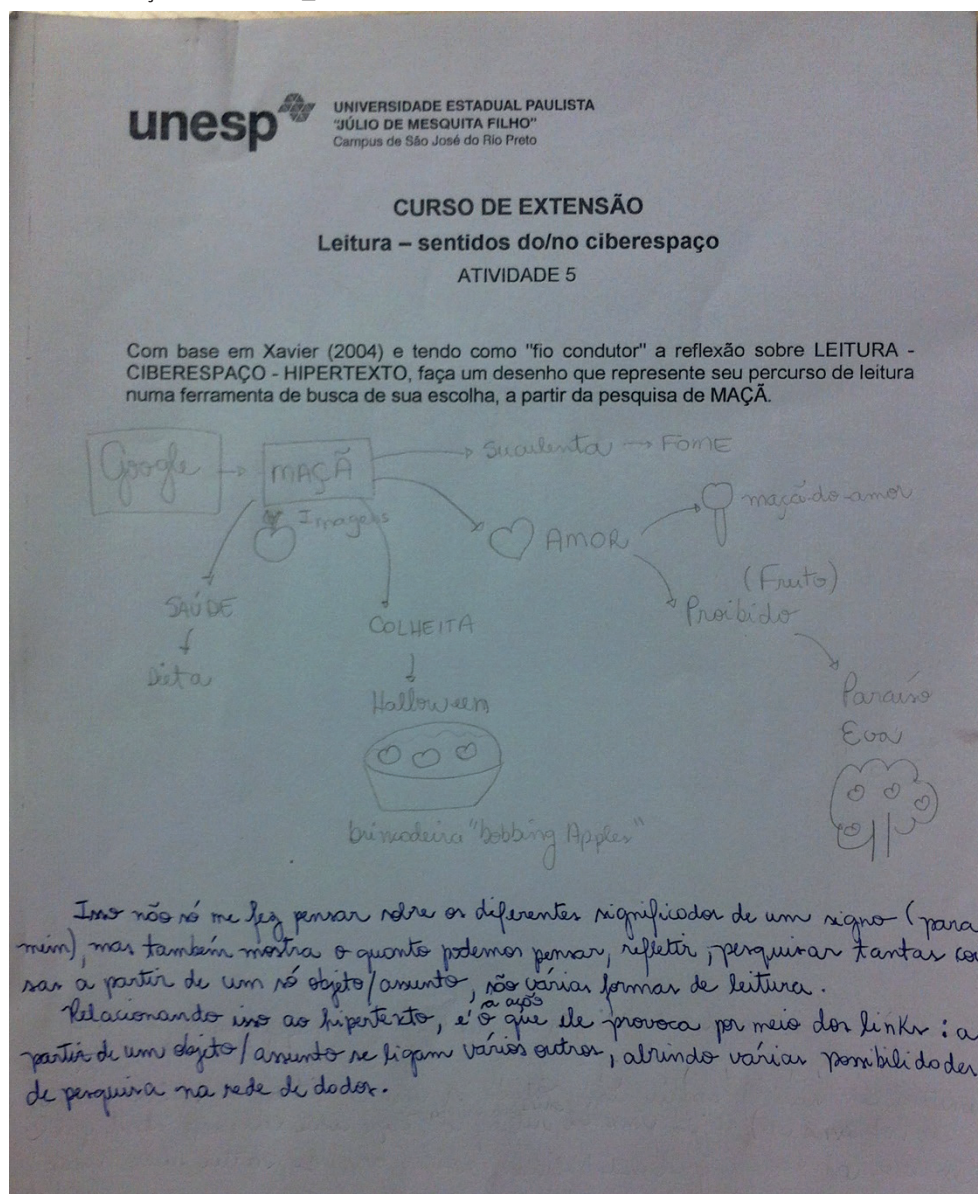 unesp
UNIVERSIDADE ESTADUAL PAULISTA
"JÚLIO DE MESQUITA FILHO"
Campus de São José do Rio Preto
CURSO DE EXTENSÃO
Leitura – sentidos do/no ciberespaço
ATIVIDADE 5
Com base em Xavier (2004) e tendo como "fio condutor" a reflexão sobre LEITURA -
CIBERESPAÇO - HIPERTEXTO, faça um desenho que represente seu percurso de leitura
numa ferramenta de busca de sua escolha, a partir da pesquisa de MAÇÃ.
Google
MAÇÃ
Suculenta → FOME
Imagens
AMOR
maçã-do-amor
(Fruto)
Proibido
SAÚDE
Dieta
COLHEITA
Halloween
Paraíso
Eva
brincadeira "bobbing Apples"
Isso não só me fez pensar sobre os diferentes significados de um signo (para
mim), mas também mostra o quanto podemos pensar, refletir, pesquisar tantas coi
sas a partir de um só objeto/assunto, são várias formas de leitura.
Relacionando isso ao hipertexto, é a ação que ele provoca por meio dos links: a
partir de um objeto/assunto se ligam vários outros, abrindo várias possibilidades
de pesquisa na rede de dados.